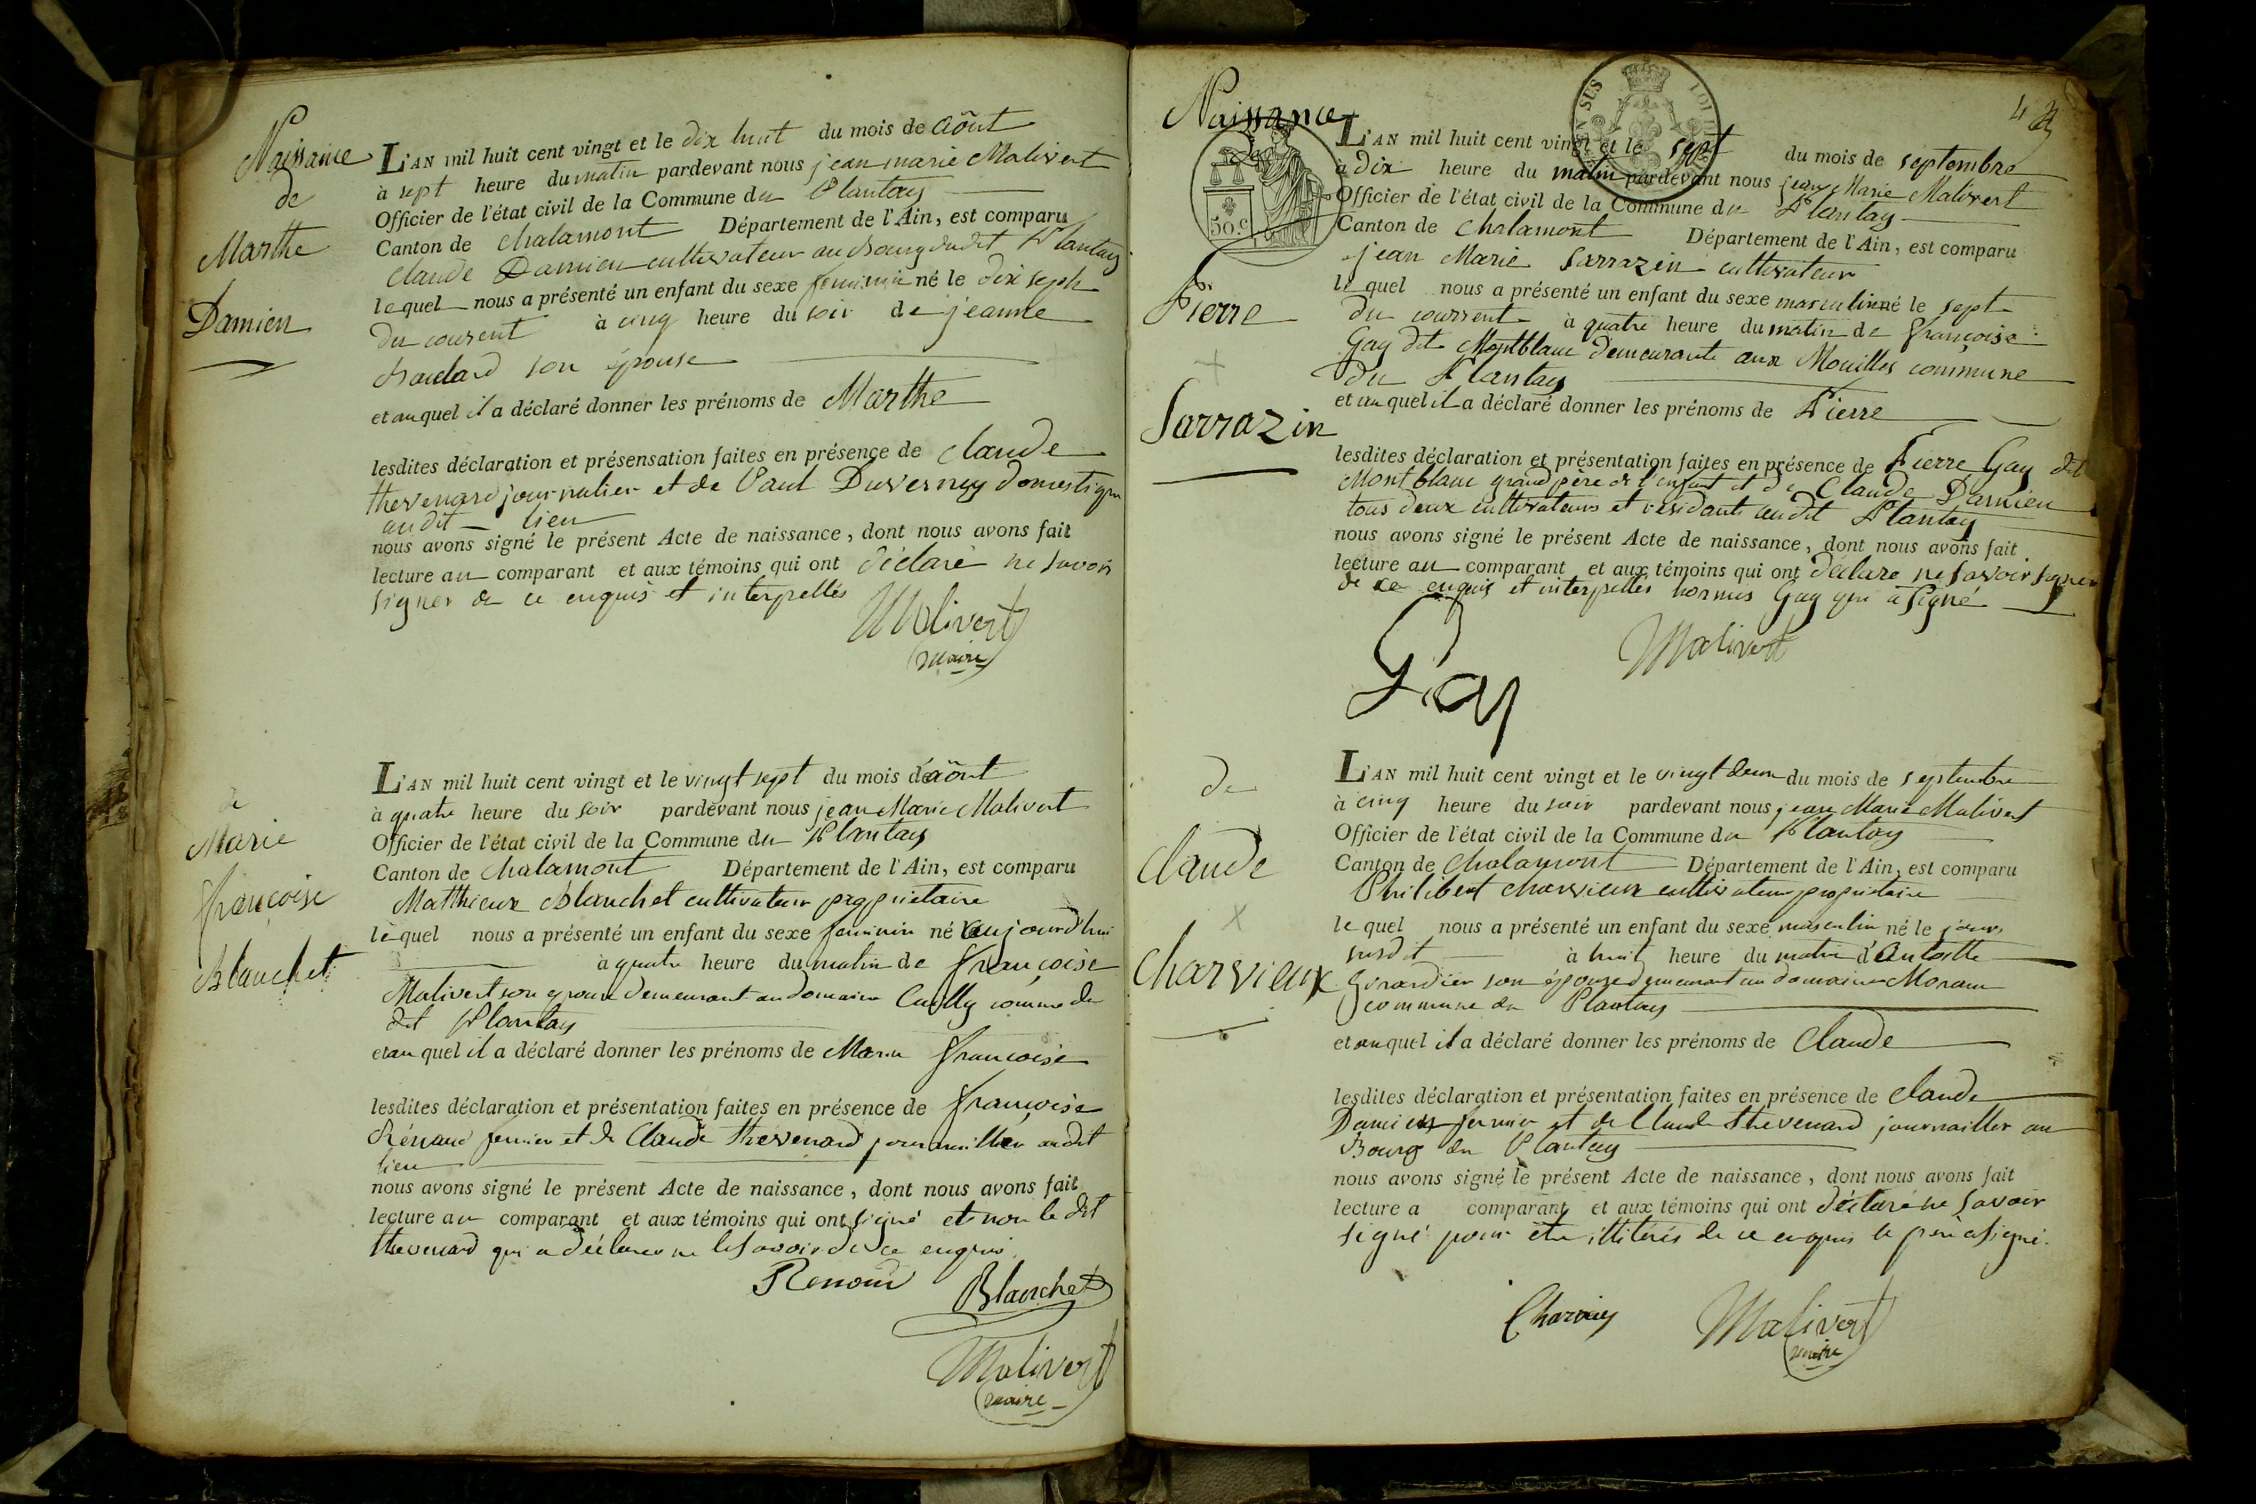 Naissance
de
Marthe
Damien
L'AN mil huit cent vingt et le dix huit du mois de août
à sept heure du matin pardevant nous jean marie Malivert
Officier de l'état civil de la Commune du Plantay
Canton de chalamont Département de l'Ain, est comparu
claude Damien cultivateur au bourg dudit Plantay
lequel nous a présenté un enfant du sexe feminin né le dix sept
du courent à cinq heure du soir de jeanne
son épouse
et auquel il a déclaré donner les prénoms de Marthe
lesdites déclaration et présensation faites en présence de claude
thevenard journalier et de Paul Duvernay domestique
audit lieu
nous avons signé le présent Acte de naissance, dont nous avons fait
lecture au comparant et aux témoins qui ont déclaré ne savoir
signer de ce enquis et interpellés
Malivert
maire
de
Marie
françoise
Blanchet
L'AN mil huit cent vingt et le vingt sept du mois d'août
à quatre heure du soir pardevant nous jean Marie Malivert
Officier de l'état civil de la Commune du Plantay
Canton de chalamont Département de l'Ain, est comparu
Matthieux Blanchet cultivateur propriétaire
lequel nous a présenté un enfant du sexe feminin né aujourd'hui
à quatre heure du matin de françoise
Malivert son epouse demeurant au domaine Cuilly commune du
dit Plantay
et au quel il a déclaré donner les prénoms de Marie françoise
lesdites déclaration et présentation faites en présence de françoise
Rénaud fermier et de Claude thevenard journaillier audit
lieu
nous avons signé le présent Acte de naissance, dont nous avons fait
lecture au comparant et aux témoins qui ont signé et non le dit
thevenard qui a déclarer ne le savoir de ce enquis.
Renoud Blanchet
Malivert
maire
Naissance
Pierre
Sarrazin
50.c
L'AN mil huit cent vingt et le sept du mois de septembre
à dix heure du matin pardevant nous jean Marie Malivert
Officier de l'état civil de la Commune du Plantay
Canton de chalamont Département de l'Ain, est comparu
jean Marie Sarrazin cultivateur
lequel nous a présenté un enfant du sexe masculin né le sept
du courrent à quatre heure du matin de françoise
Gay dit Montblanc demeurante aux Mouilles commune
du Plantay
et au quel il a déclaré donner les prénoms de Pierre
lesdites déclaration et présentation faites en présence de Pierre Gay dit
Montblanc grand père de l'enfant et de Claude Damien
tous deux cultivateurs et résidants audit Plantay
nous avons signé le présent Acte de naissance, dont nous avons fait
lecture au comparant et aux témoins qui ont déclaré ne savoir signer
de ce enquis et interpellés hormis Gay qui a signé
Malivert
Gay
de
Claude
Charvieux
L'AN mil huit cent vingt et le vingt deux du mois de septembre
à cinq heure du soir pardevant nous jean Marie Malivert
Officier de l'état civil de la Commune du Plantay
Canton de Chalamont Département de l'Ain, est comparu
Philibert charvieux cultivateur propriétaire
lequel nous a présenté un enfant du sexe masculin né le jours
susdit à huit heure du matin d'Antoitte
Girardier son épouse demeurant au domaine Moram
commune du Plantay
et auquel il a déclaré donner les prénoms de Claude
lesdites déclaration et présentation faites en présence de claude
Damien fermier et de Claude thevenard journaillier au
Bourg du Plantay
nous avons signé le présent Acte de naissance, dont nous avons fait
lecture a comparant et aux témoins qui ont déclaré ne savoir
signé pour être illitérés de ce enquis le père a signé.
Malivert
maire